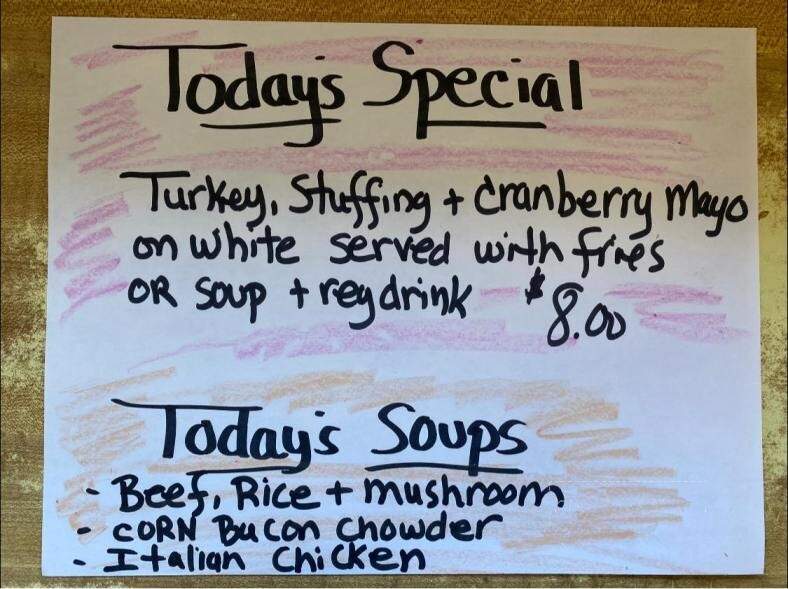 Today's Special
Turkey, Stuffing + Cranberry Mayo
on white served with fries
OR soup + reg drink $8.00
Today's Soups
- Beef, Rice + mushroom
- CORN Bacon Chowder
- Italian Chicken